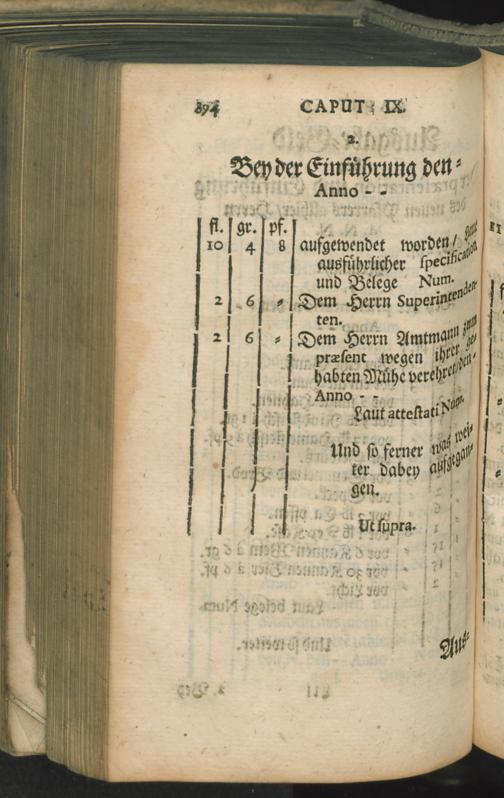 894 CAPUT IX.
2.
Bey der Einführung den -
Anno - -
fl. gr. pf.
10 4 8 aufgewendet worden / Laut
ausführlicher specification
und Belege Num.
2 6 - Dem Herrn Superintenden-
ten.
2 6 - Dem Herrn Amtmann zum
præsent wegen ihrer ge-
habten Mühe verehret / den -
Anno - -
Laut attestati Num.
Und so ferner was wei-
ter dabey aufgegan-
gen.
Ut supra.
Aus-